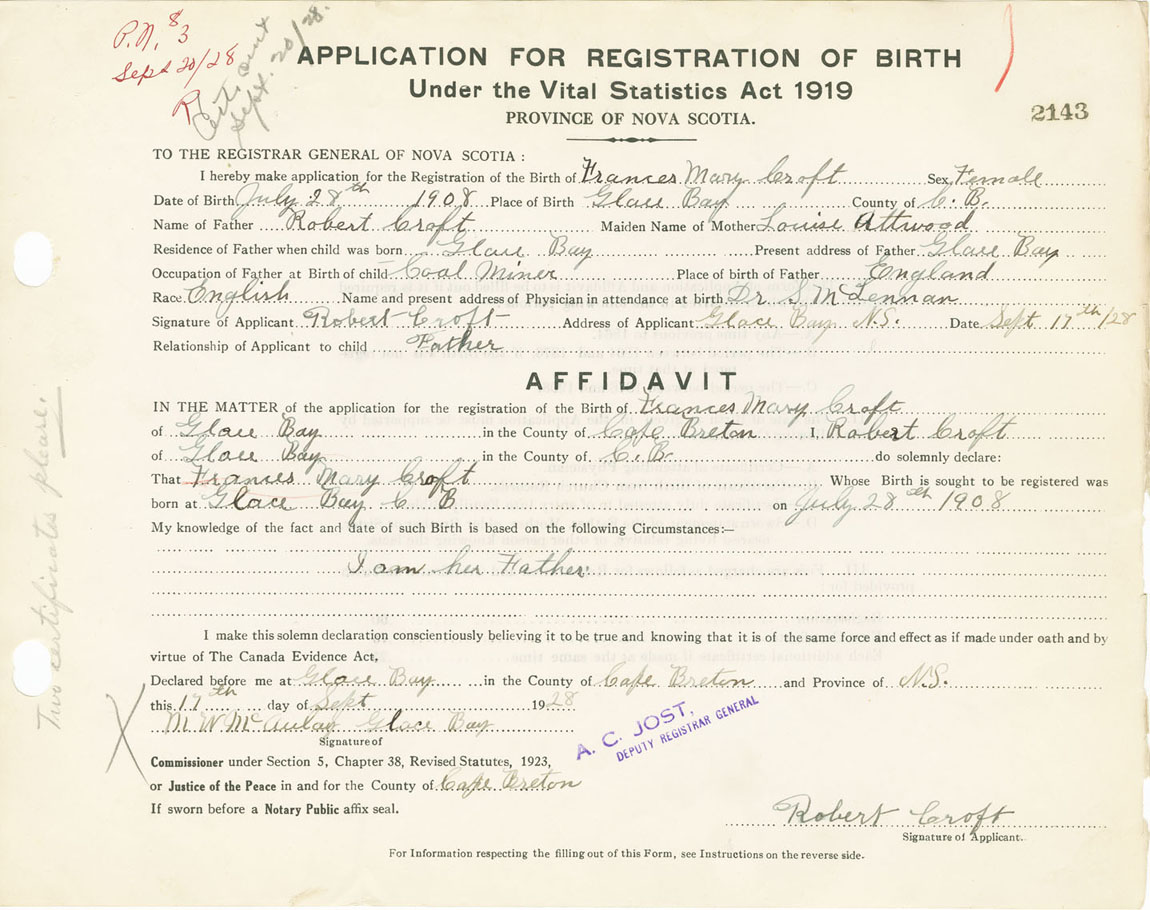 P.N. $3
Sept 20/28
Cert. sent
Sept. 20/28.
APPLICATION FOR REGISTRATION OF BIRTH
Under the Vital Statistics Act 1919
PROVINCE OF NOVA SCOTIA.
2143
TO THE REGISTRAR GENERAL OF NOVA SCOTIA :
I hereby make application for the Registration of the Birth of Frances Mary Croft Sex Female
Date of Birth July 28th 1908 Place of Birth Glace Bay County of C.B.
Name of Father Robert Croft Maiden Name of Mother Louise Attwood
Residence of Father when child was born Glace Bay Present address of Father Glace Bay
Occupation of Father at Birth of child Coal Miner Place of birth of Father England
Race English Name and present address of Physician in attendance at birth Dr. S McLennan
Signature of Applicant Robert Croft Address of Applicant Glace Bay N.S. Date Sept 17th/28
Relationship of Applicant to child Father
AFFIDAVIT
IN THE MATTER of the application for the registration of the Birth of Frances Mary Croft
of Glace Bay in the County of Cape Breton I, Robert Croft
of Glace Bay in the County of C.B. do solemnly declare:
That Frances Mary Croft Whose Birth is sought to be registered was
born at Glace Bay C B on July 28th 1908
My knowledge of the fact and date of such Birth is based on the following Circumstances:—
I am her Father.
I make this solemn declaration conscientiously believing it to be true and knowing that it is of the same force and effect as if made under oath and by
virtue of The Canada Evidence Act,
Declared before me at Glace Bay in the County of Cape Breton and Province of N.S.
this 17th day of Sept 1928
M W McAulay Glace Bay
Signature of
A. C. JOST,
DEPUTY REGISTRAR GENERAL
Commissioner under Section 5, Chapter 38, Revised Statutes, 1923,
or Justice of the Peace in and for the County of Cape Breton
If sworn before a Notary Public affix seal.
Robert Croft
Signature of Applicant.
For Information respecting the filling out of this Form, see Instructions on the reverse side.
Two certificates please.